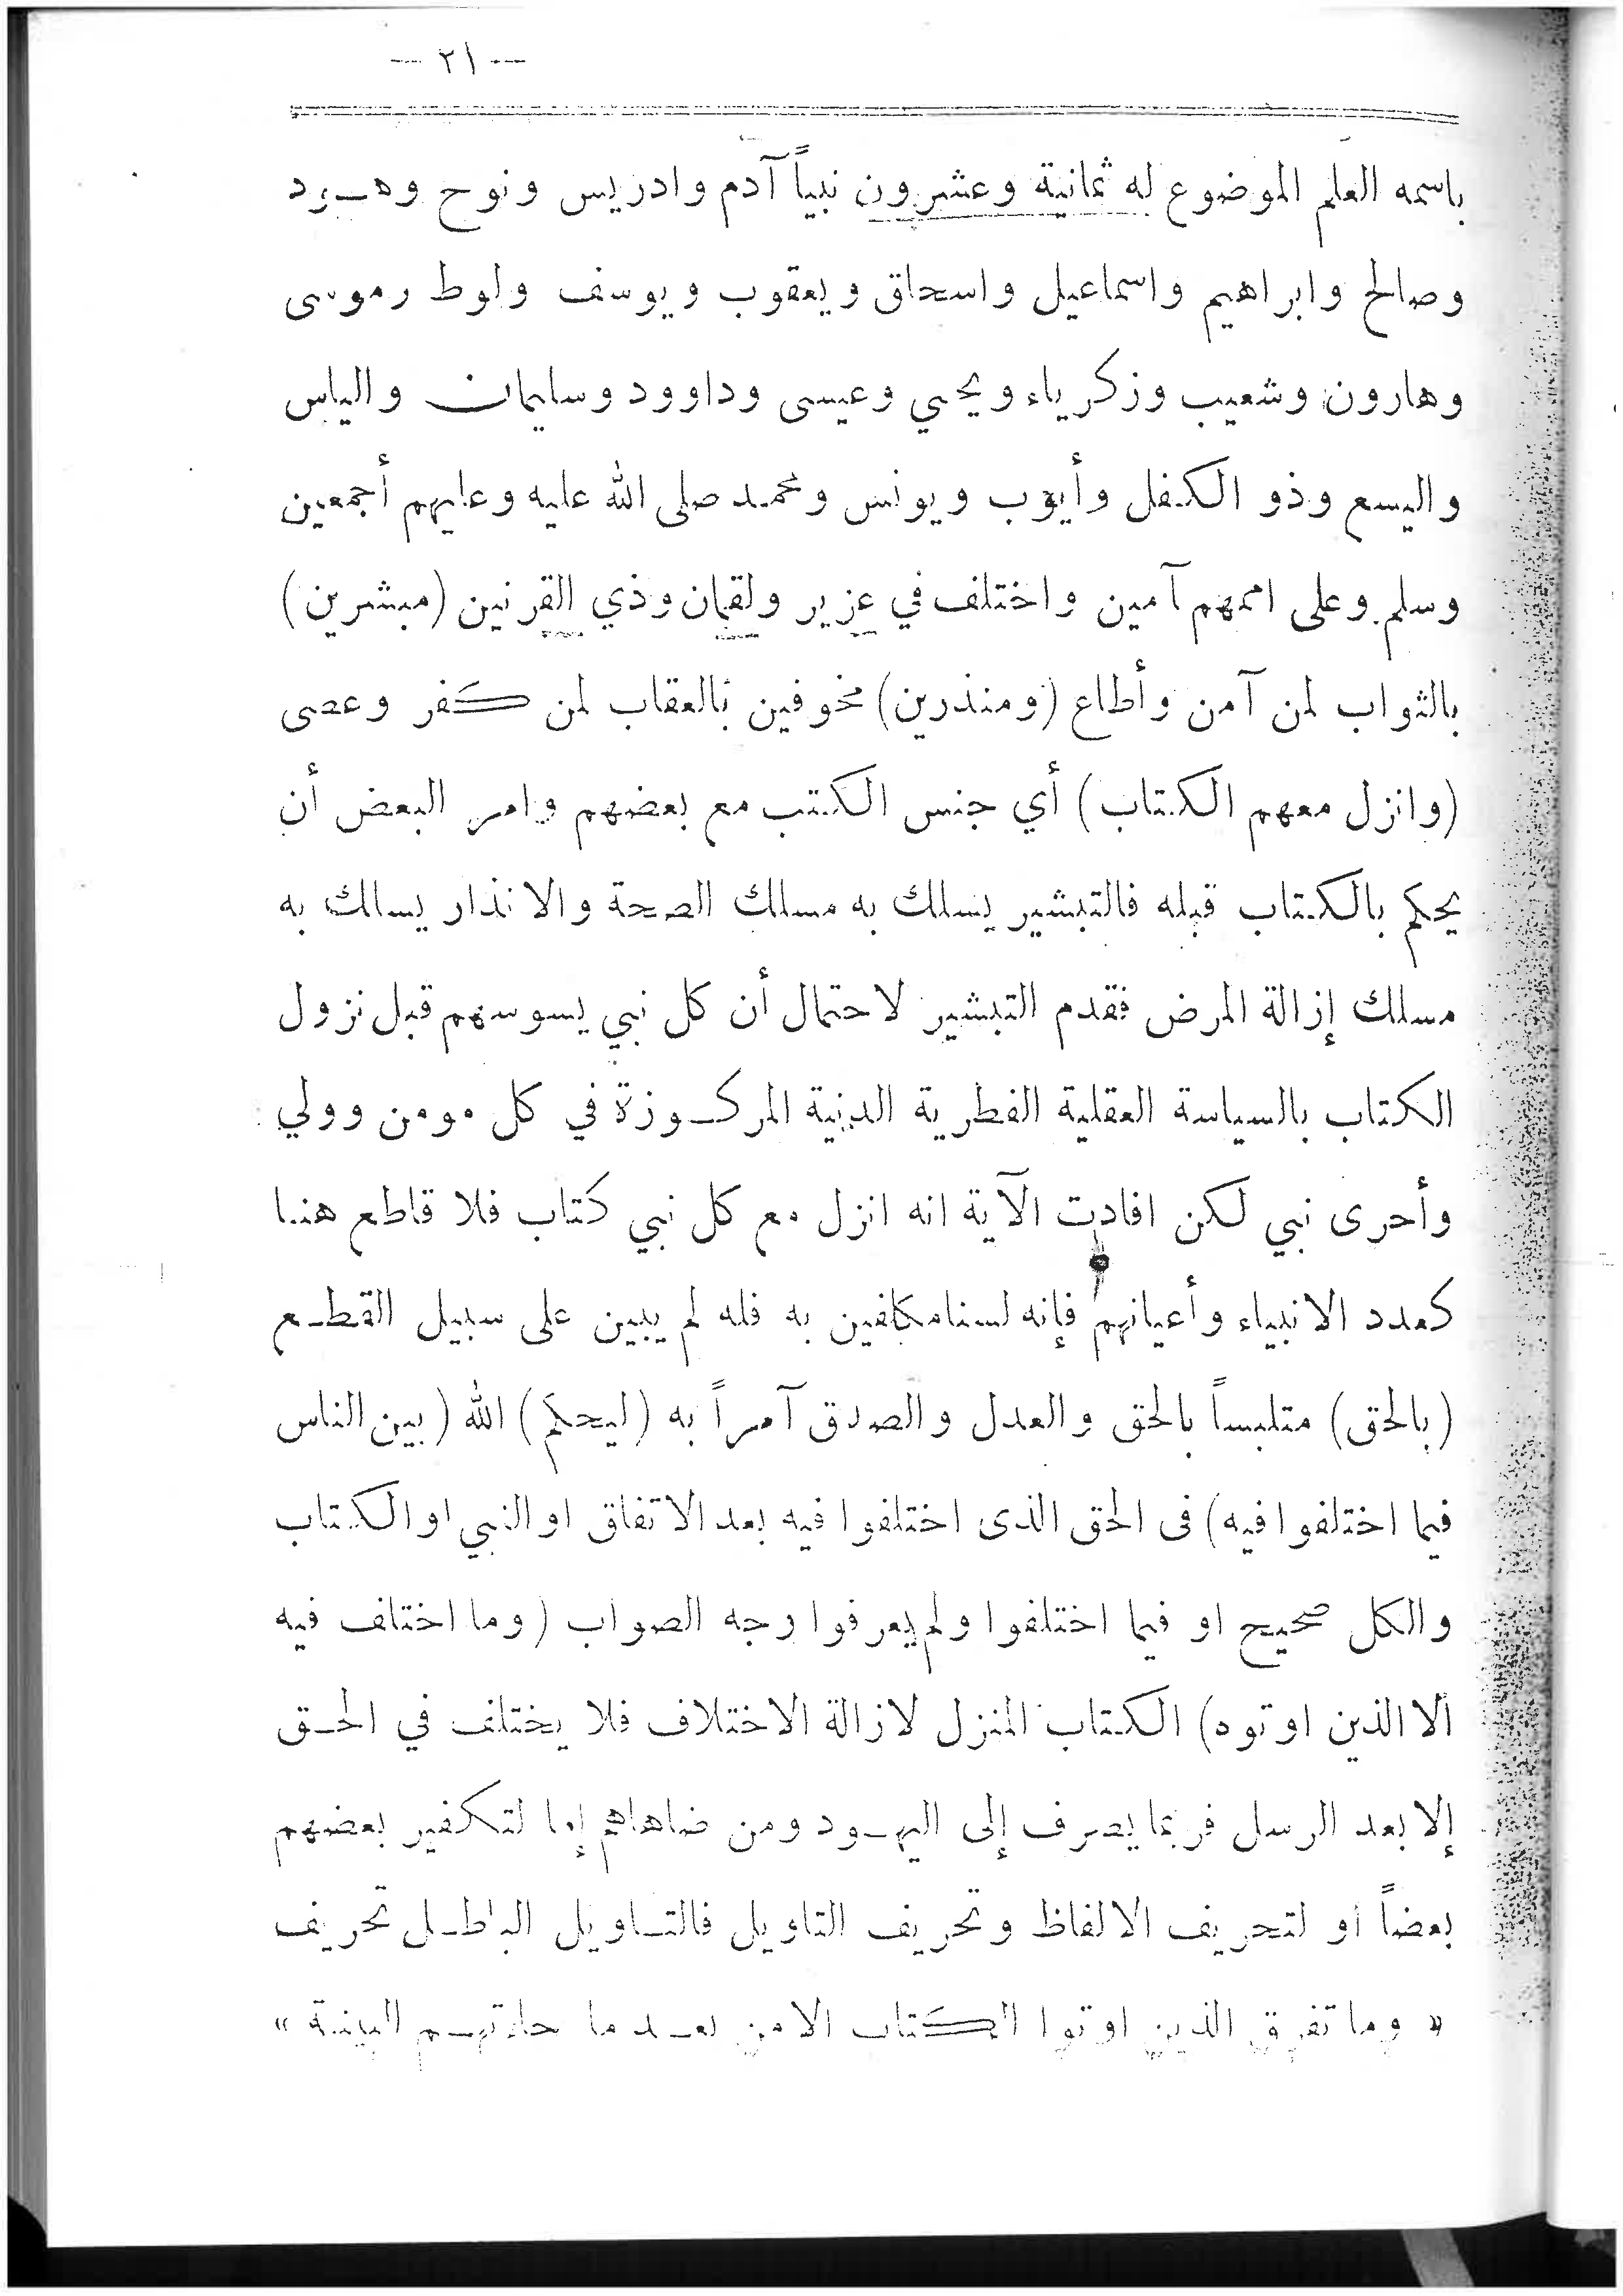 — ٢١ —
باسمه العلم الموضوع له ثمانية وعشرون نبياً آدم وادريس ونوح وهود
وصالح وابراهيم واسماعيل واسحاق ويعقوب ويوسف ولوط وموسى
وهارون وشعيب وزكرياء ويحيي وعيسى وداوود وسليمان والياس
واليسع وذو الكفل وأيوب ويونس ومحمد صلى الله عليه وعليهم أجمعين
وسلم وعلى اممهم آمين واختلف في عزير ولقمان وذي القرنين (مبشرين)
بالثواب لمن آمن وأطاع (ومنذرين) مخوفين بالعقاب لمن كفر وعصى
(وانزل معهم الكتاب) أي جنس الكتب مع بعضهم وامر البعض أن
يحكم بالكتاب قبله فالتبشير يسلك به مسلك الصحة والانذار يسلك به
مسلك إزالة المرض فقدم التبشير لاحتمال أن كل نبي يسوسهم قبل نزول
الكتاب بالسياسة العقلية الفطرية الدينية المركوزة في كل مومن وولي
وأحرى نبي لكن افادت الآية انه انزل مع كل نبي كتاب فلا قاطع هنا
كعدد الانبياء وأعيانهم فإنه لسنا مكلفين به فله لم يبين على سبيل القطع
(بالحق) متلبساً بالحق والعدل والصدق آمراً به (ليحكم) الله (بين الناس
فيما اختلفوا فيه) فى الحق الذى اختلفوا فيه بعد الاتفاق او النبي او الكتاب
والكل صحيح او فيما اختلفوا ولم يعرفوا وجه الصواب (وما اختلف فيه
الا الذين اوتوه) الكتاب المنزل لازالة الاختلاف فلا يختلف في الحق
إلا بعد الرسل فربما يصرف إلى اليهود ومن ضاهاهم إما لتكفير بعضهم
بعضاً أو لتحريف الالفاظ وتحريف التاويل فالتاويل الباطل تحريف
« وما تفرق الذين اوتوا الكتاب الا من بعد ما جاءتهم البينة »